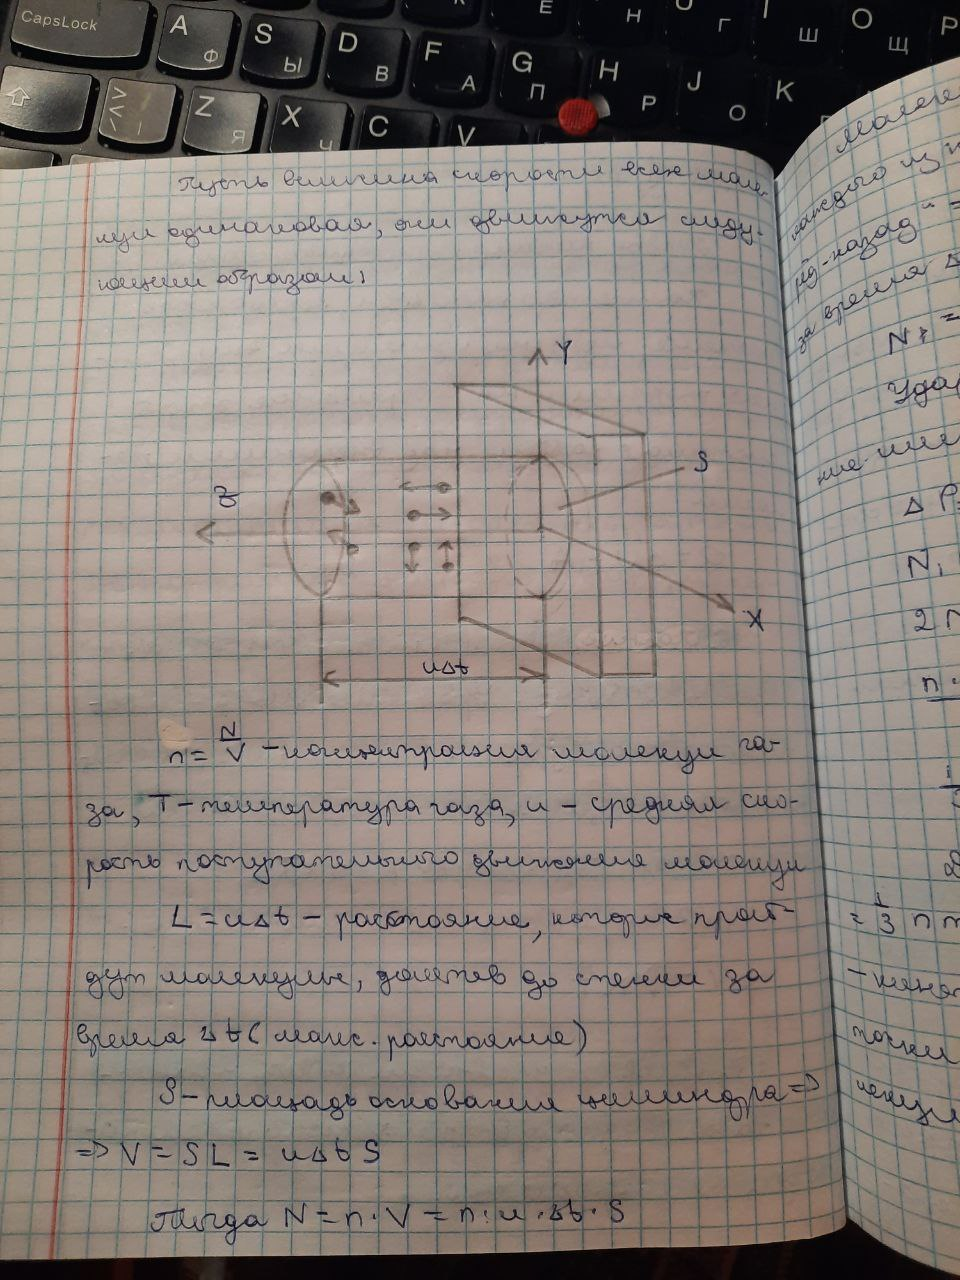 CapsLock
A Ф
S Ы
D В
F А
G П
H Р
J О
K
Е
Н
Г
Ш
О Щ
Z Я
X Ч
C
V
Пусть величина скорости всех моле-
кул одинаковая, они движутся следу-
ющим образом:
Y
S
Z
X
uΔt
n = N/V - концентрация молекул га-
за, T - температура газа, u - средняя ско-
рость поступательного движения молекул
L = uΔt - расстояние, которые прой-
дут молекулы, долетев до стенки за
время Δt (макс. расстояние)
S - площадь основания цилиндра =>
=> V = SL = uΔt S
Тогда N = n · V = n · u · Δt · S
каждого из
-назад" =
за время Δ
Удар
Δ P
N₁
2
n ·
= 1/3 n m
точки